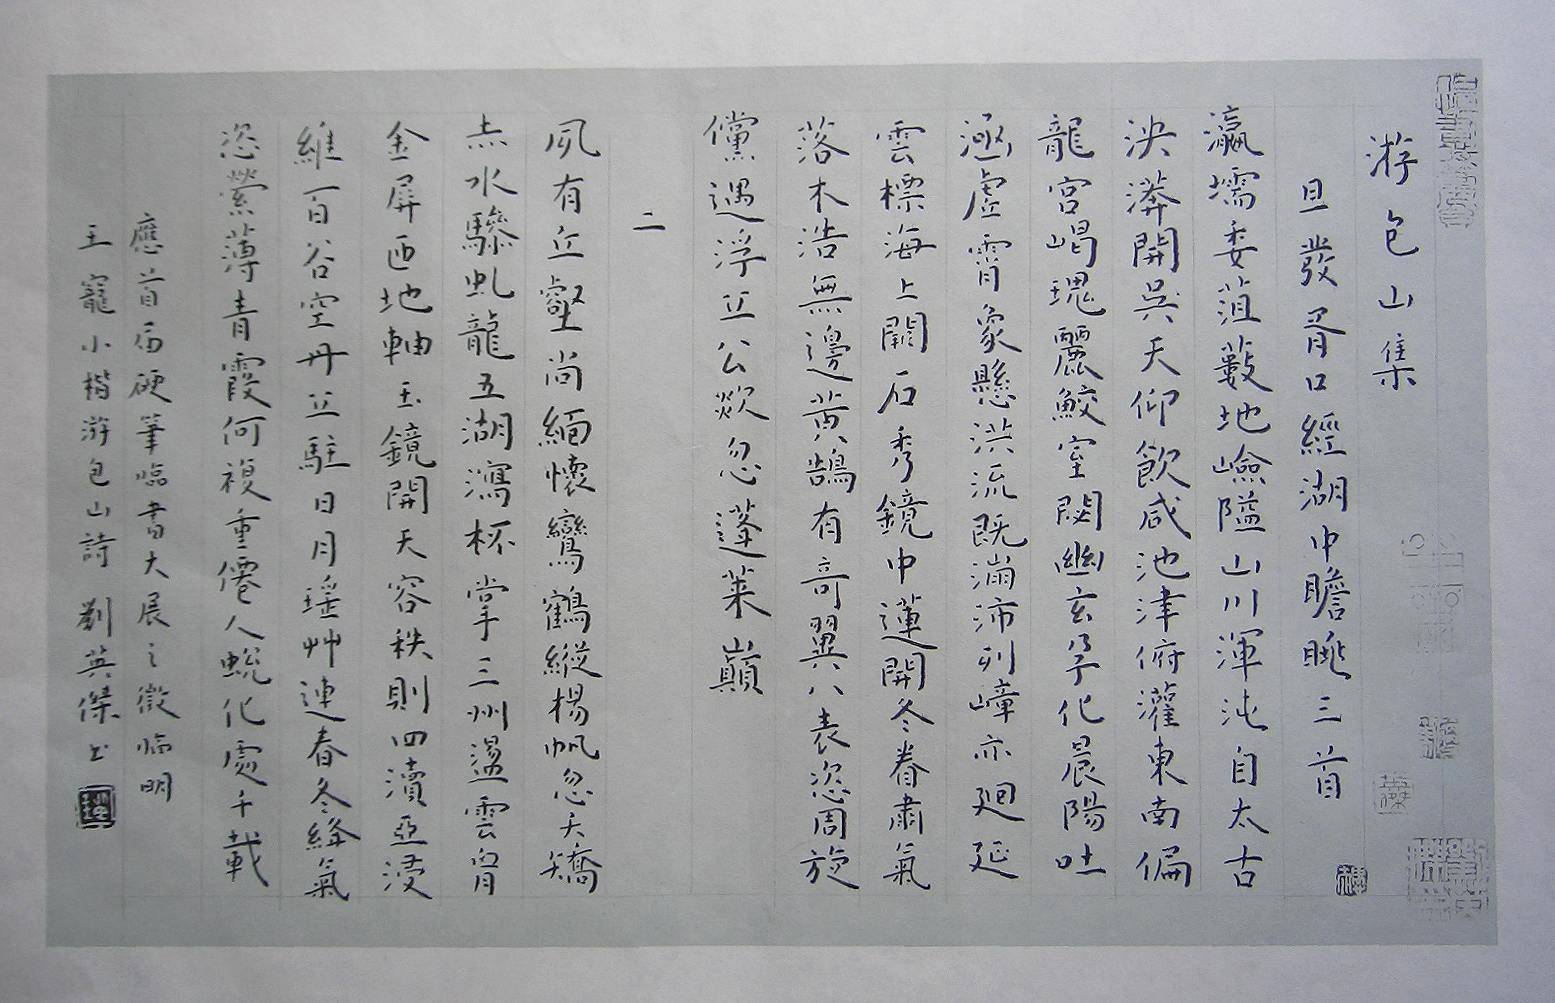 游包山集
旦發胥口經湖中瞻眺三首
瀛壖委菹藪地嶮隘山川渾沌自太古
泱漭開吳天仰飲咸池津俯灌東南偏
龍宮嵑瑰麗鮫室閟幽玄孕化晨陽吐
涵虛霄象懸洪流既滿沛列嶂亦迴延
雲標海上闕石秀鏡中蓮開冬眷肅氣
落木浩無邊黃鵠有奇翼八表恣周旋
儻遇浮丘公欻忽蓬萊巔
二
夙有丘壑尚緬懷鸞鶴縱楊帆忽夭矯
赤水驂虬龍五湖瀉杯掌三州盪雲胷
金屏匝地軸玉鏡開天容秩則四瀆亞浸
維百谷空丹丘駐日月瑤艸連春冬絳氣
恣縈薄青霞何複重僊人蛻化處千載
應首屆硬筆臨書大展之徵臨明
王寵小楷游包山詩 劉英傑書